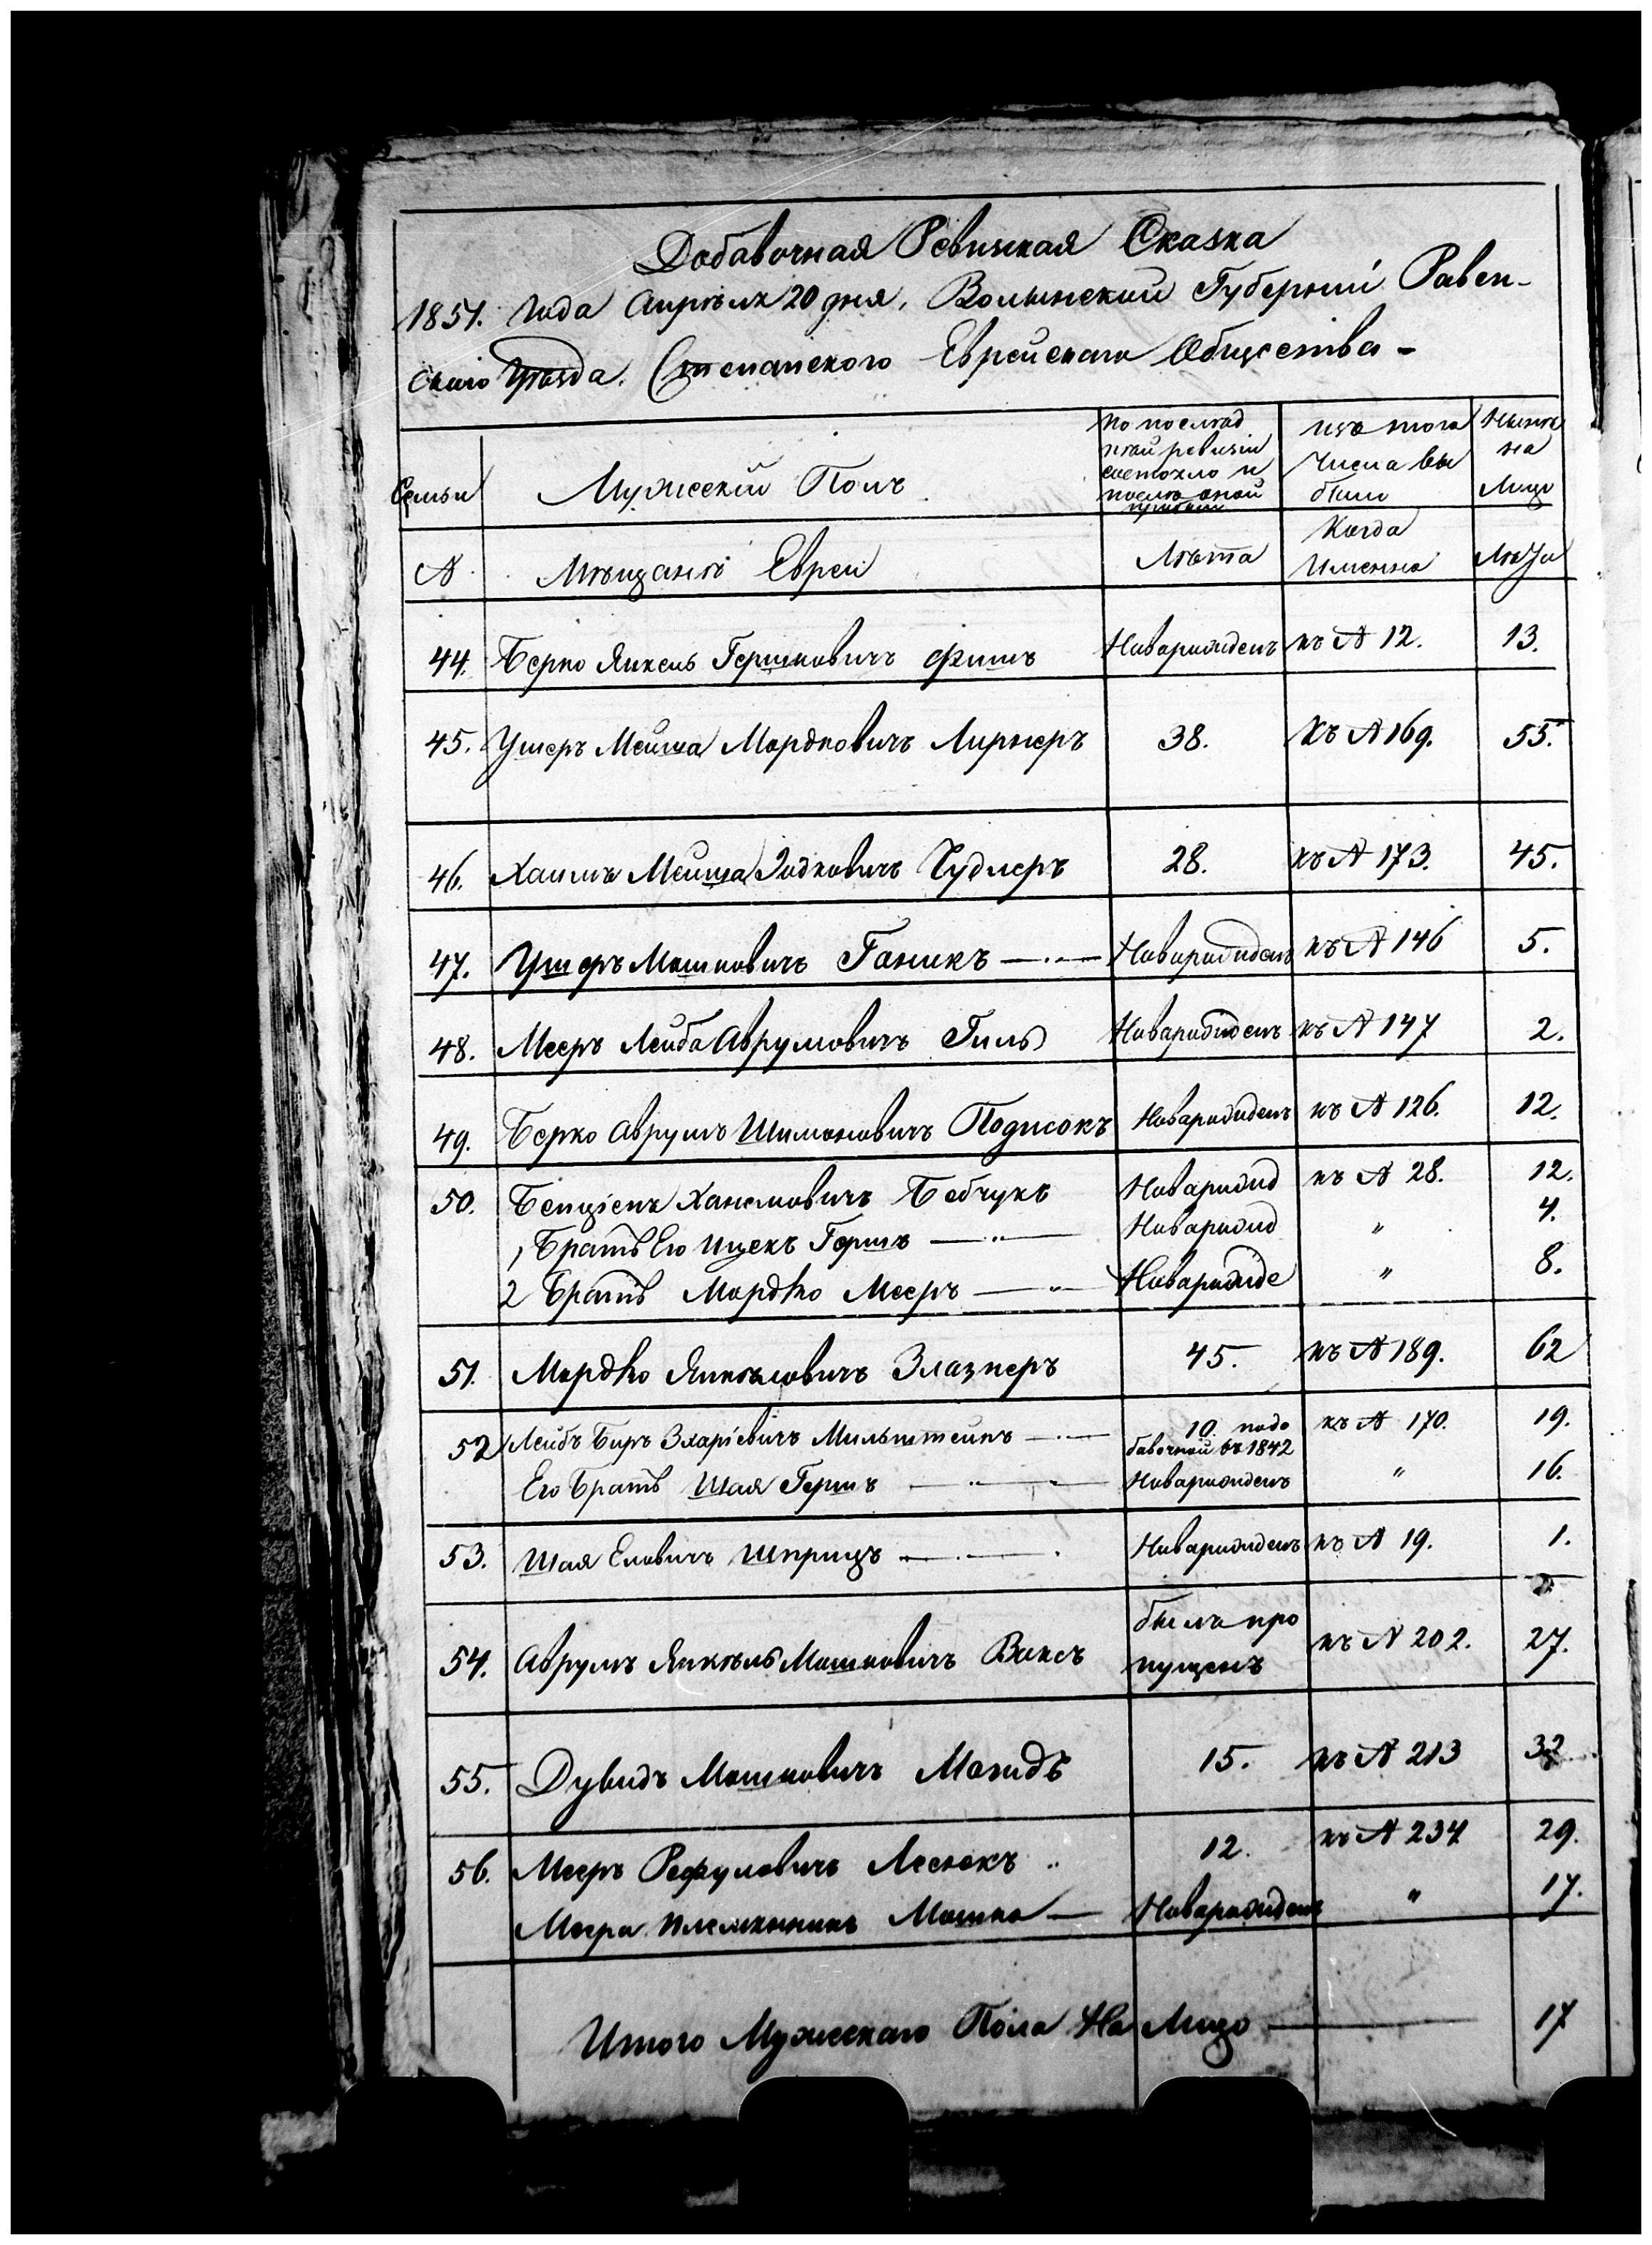 Добавочная Ревизкая Сказка
1851. Года Апрѣля 20 дня, Волынской Губерніи Равен-
скаго Уѣзда. Степанского Еврейскаго Общества -
Семьи Мужескій Полъ По послѣд ней ревизіи состояло и послѣ оной прибыли изъ того Числа вы были Нынѣ на Лицо
№ Мѣщанѣ Евреи Лѣта Когда Именно Лѣта
44. Берко Янкель Гершковичъ Фишъ Новарожденъ къ № 12. 13.
45. Ушеръ Мейша Мордковичъ Лирнеръ 38. Къ № 169. 55.
46. Хаимъ Мейша Чудлеръ 28. къ № 173. 45.
47. Ушеръ Мошковичъ Ганикъ Новарожденъ къ № 146 5.
48. Мееръ Лейба Аврумовичъ Гиль Новарожденъ къ № 147 2.
49. Берко Аврумъ Шимоновичъ Подисокъ Новарожденъ къ № 126. 12.
50. Бенціенъ Хаимовичъ Бебчукъ Новарожд къ № 28. 12.
1, Братъ Его Ицекъ Гершъ — " — Новарожд " 4.
2 Братъ Мордко Мееръ — " — Новарожде " 8.
51. Мордко Янкѣловичъ Элазнеръ 45. къ № 189. 62
52 Лейбъ Беръ Зхаріевичъ Мильштейнъ 10. подо бавочной въ 1842 къ № 170. 19.
Его Братъ Шая Гершъ Новарожденъ " 16.
53. Шая Елевичъ Шприцъ Новарожденъ къ № 19. 1.
54. Аврумъ Янкѣль Мошковичъ Ваксъ былъ про пущенъ къ № 202. 27.
55. Дувидъ Мошковичъ Магидъ 15. къ № 213 32
56. Мееръ Рефуловичъ Лесюкъ 12. къ № 234 29.
Меера племянникъ Мошко — Новарожденъ " 17.
Итого Мужескаго Пола На Лицо — 17